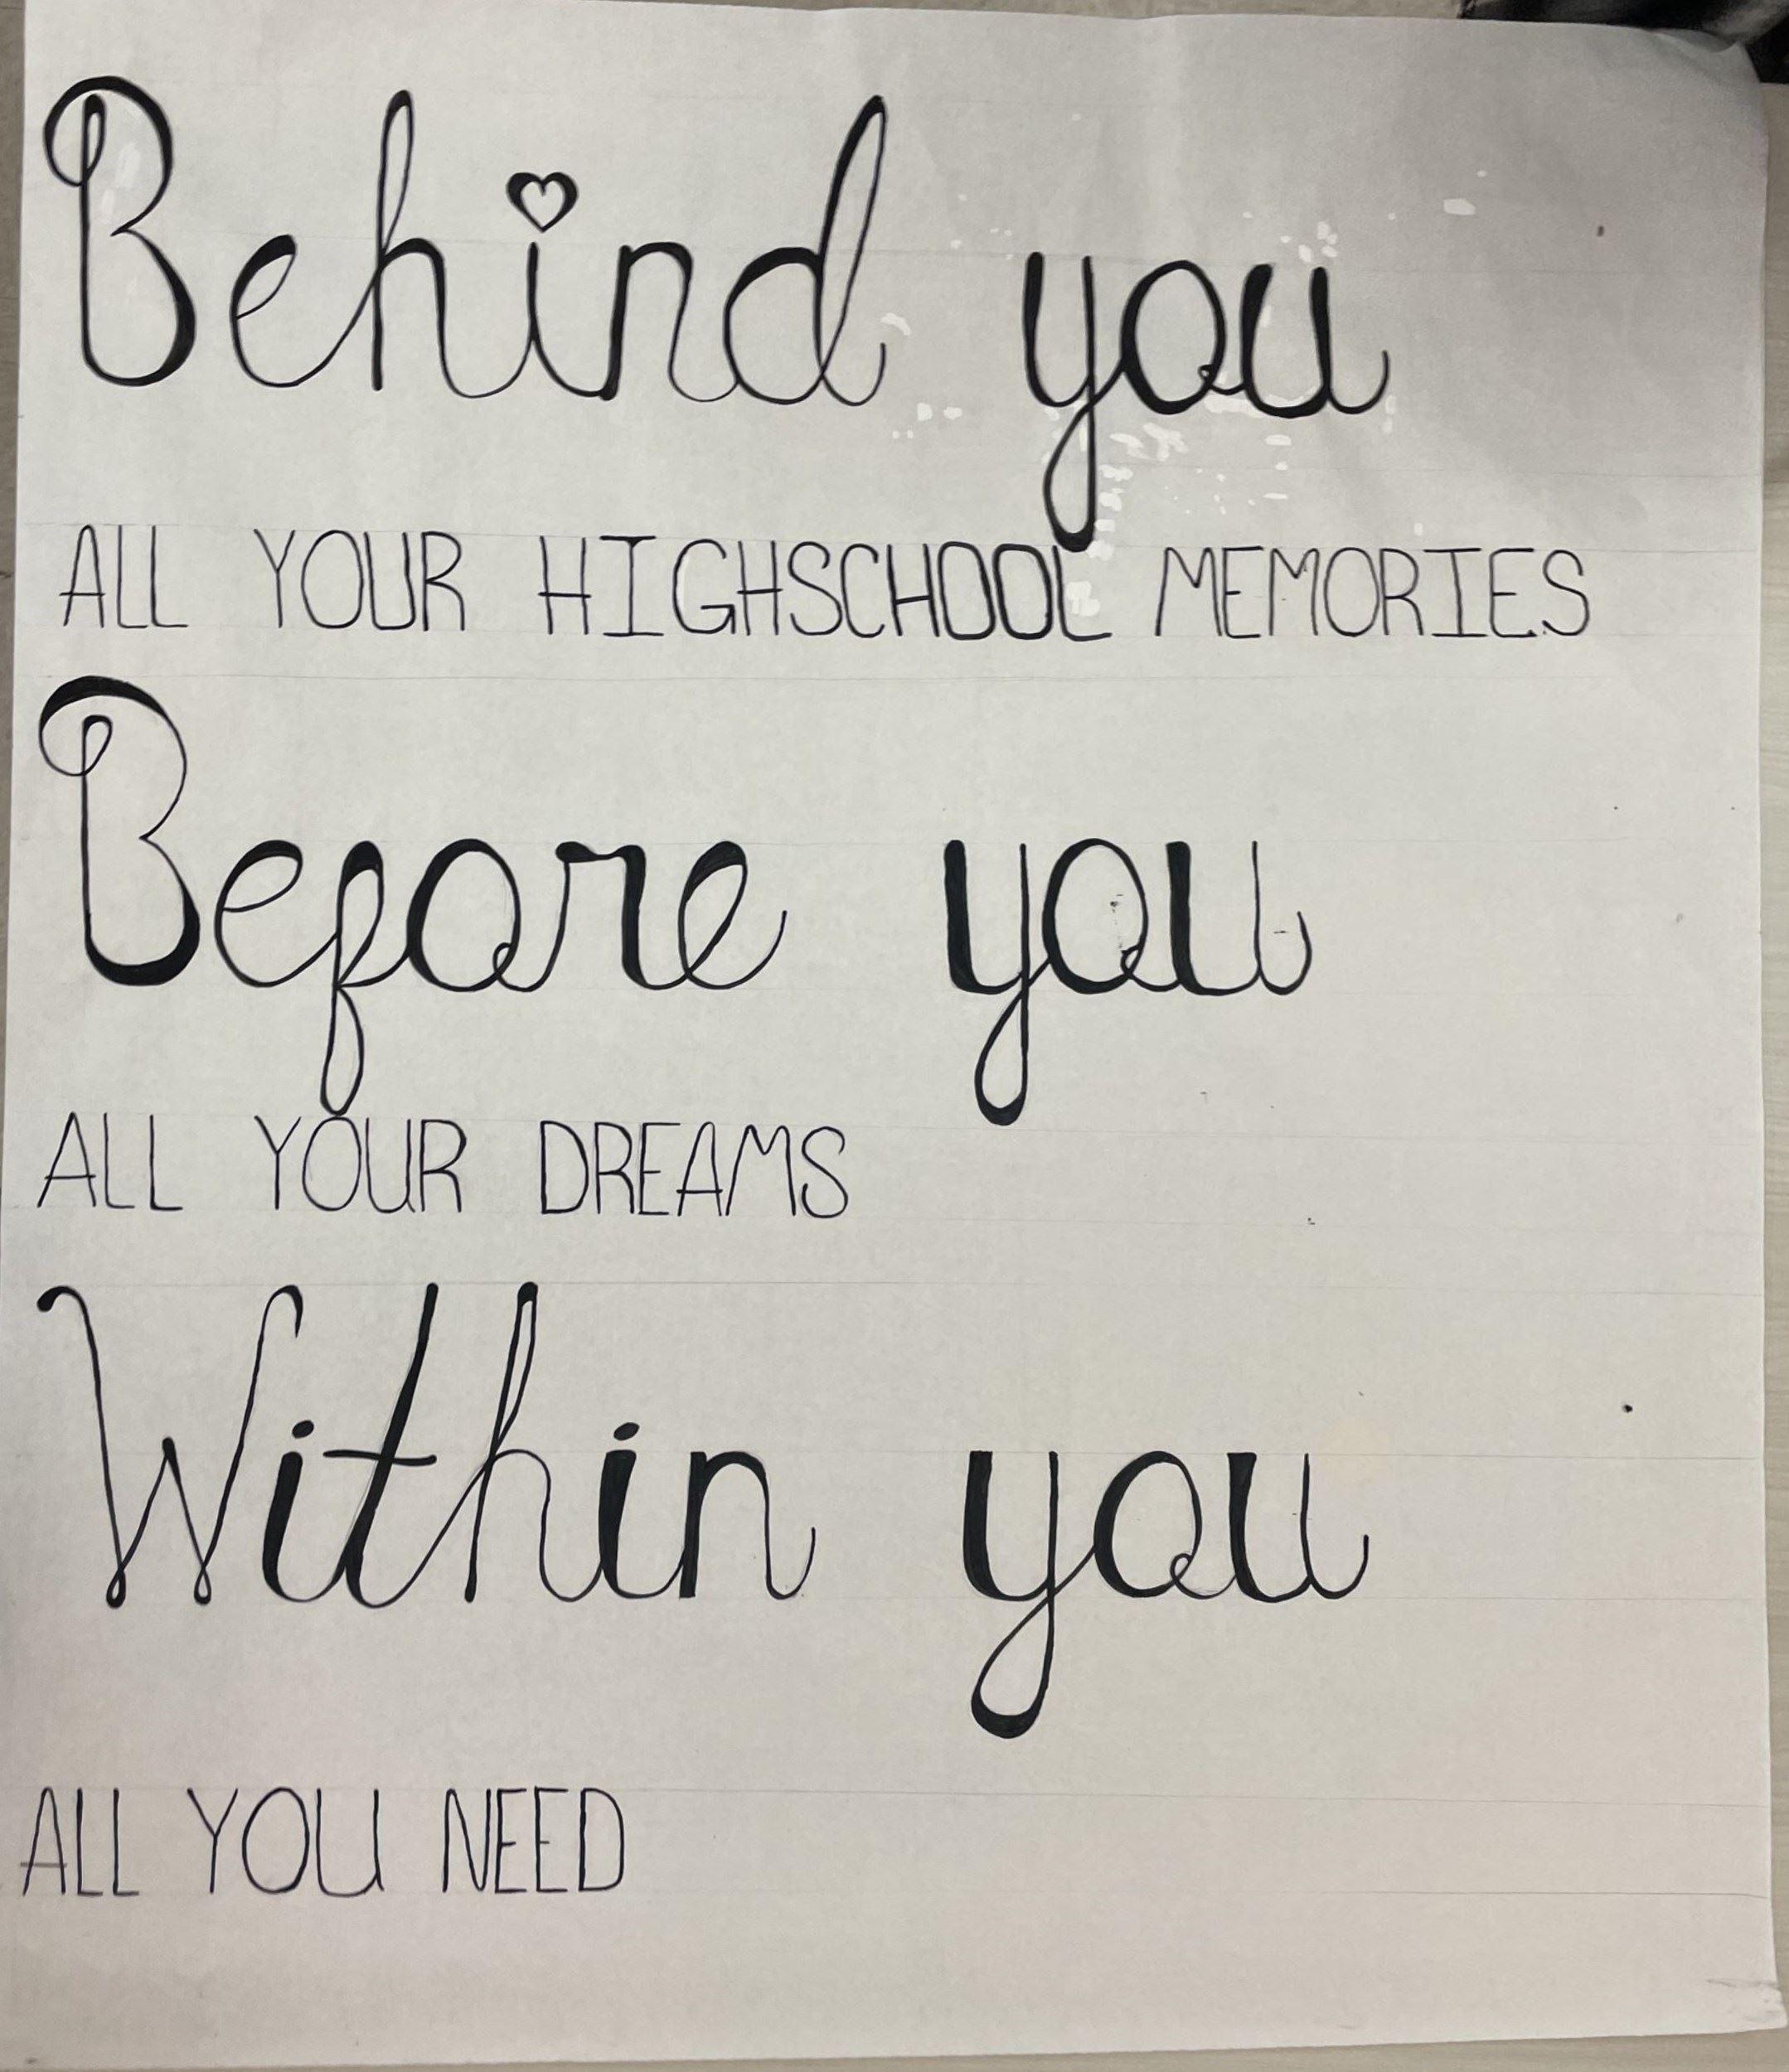 Behind you
ALL YOUR HIGHSCHOOL MEMORIES
Before you
ALL YOUR DREAMS
Within you
ALL YOU NEED